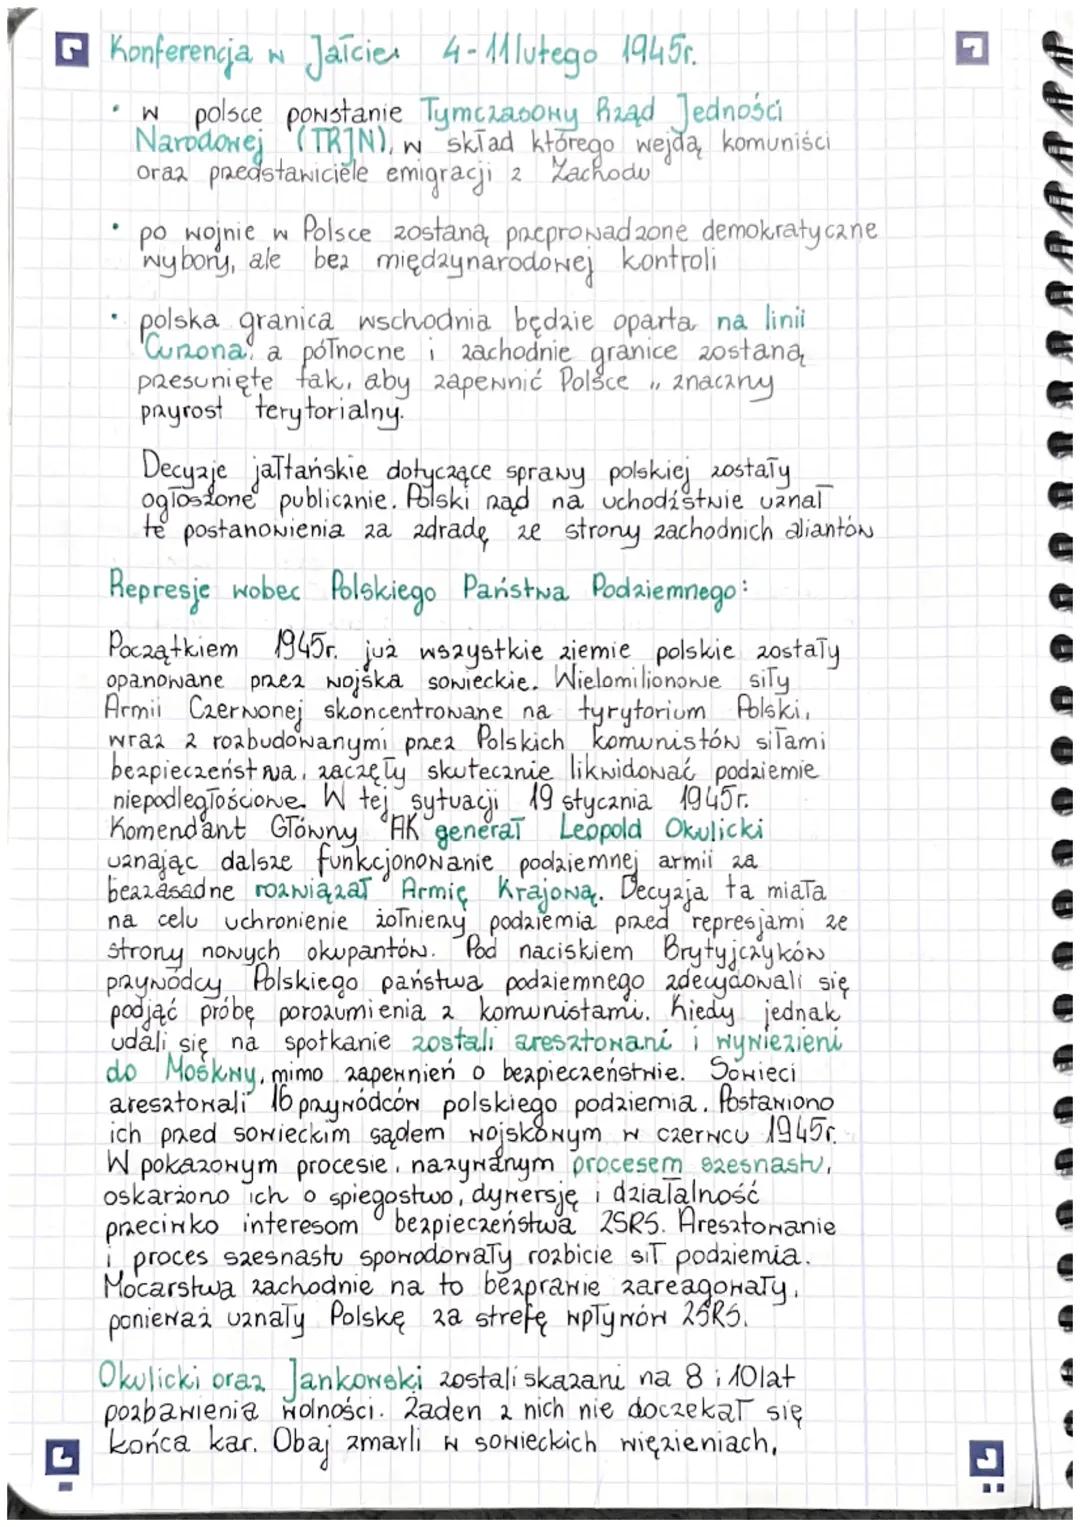 Konferencja w Jałcie 4-11 lutego 1945r.
• w polsce powstanie Tymczasowy Rząd Jedności
Narodowej (TRJN), w skład którego wejdą komuniści
oraz przedstawiciele emigracji z Zachodu
• po wojnie w Polsce zostaną przeprowadzone demokratyczne
wybory, ale bez międzynarodowej kontroli
• polska granica wschodnia będzie oparta na linii
Curzona, a północne i zachodnie granice zostaną
przesunięte tak, aby zapewnić Polsce „ znaczny
przyrost terytorialny.
Decyzje jałtańskie dotyczące sprawy polskiej zostały
ogłoszone publicznie. Polski rząd na uchodźstwie uznał
te postanowienia za zdradę ze strony zachodnich aliantów
Represje wobec Polskiego Państwa Podziemnego:
Początkiem 1945r. już wszystkie ziemie polskie zostały
opanowane przez wojska sowieckie. Wielomilionowe siły
Armii Czerwonej skoncentrowane na tyrytorium Polski,
wraz z rozbudowanymi przez Polskich komunistów siłami
bezpieczeństwa, zaczęły skutecznie likwidować podziemie
niepodległościowe. W tej sytuacji 19 stycznia 1945r.
Komendant Główny AK generał Leopold Okulicki
uznając dalsze funkcjonowanie podziemnej armii za
bezzasadne rozwiązał Armię Krajową. Decyzja ta miała
na celu uchronienie żołnierzy podziemia przed represjami ze
strony nowych okupantów. Pod naciskiem Brytyjczyków
przywódcy Polskiego państwa podziemnego zdecydowali się
podjąć próbę porozumienia z komunistami. Kiedy jednak
udali się na spotkanie zostali aresztowani i wywiezieni
do Moskwy, mimo zapewnień o bezpieczeństwie. Sowieci
aresztowali 16 przywódców polskiego podziemia. Postawiono
ich przed sowieckim sądem wojskowym w czerwcu 1945r.
W pokazowym procesie, nazywanym procesem szesnastu,
oskarżono ich o spiegostwo, dywersję i działalność
przeciwko interesom bezpieczeństwa ZSRS. Aresztowanie
i proces szesnastu spowodowały rozbicie sił podziemia.
Mocarstwa zachodnie na to bezprawie zareagowały,
ponieważ uznały Polskę za strefę wpływów ZSRS.
Okulicki oraz Jankowski zostali skazani na 8 i 10 lat
pozbawienia wolności. Żaden z nich nie doczekał się
końca kar. Obaj zmarli w sowieckich więzieniach,